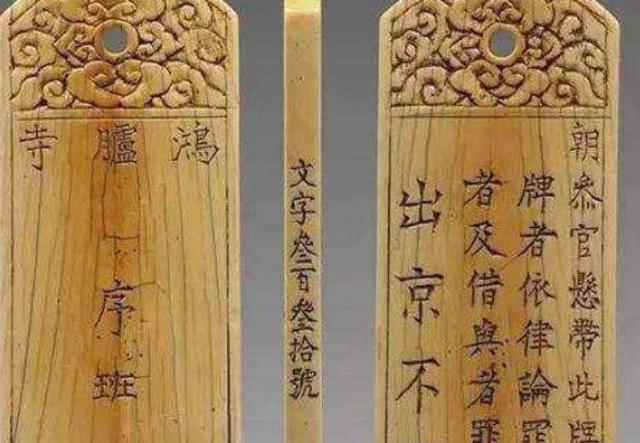 鴻臚寺
序班
文字叁百叁拾號
朝叅官懸帶此牌
牌者依律論罪
者及借與者罪
出京不